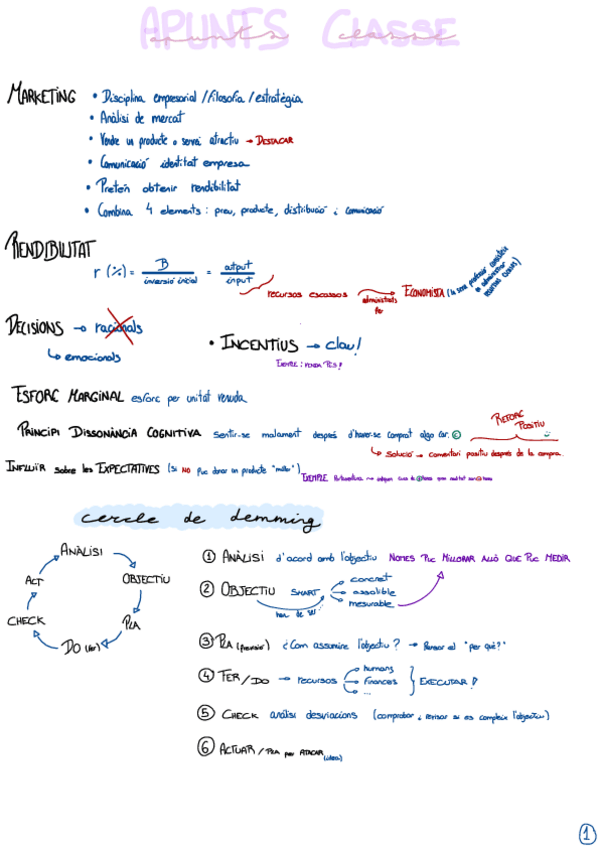 APUNTS CLASSE
apunts classe
MARKETING
• Disciplina empresarial / filosofia / estratègia
• Anàlisi de mercat
• Vendre un producte o servei atractiu → DESTACAR
• Comunicació identitat empresa
• Pretén obtenir rendibilitat
• Combina 4 elements: preu, producte, distribució i comunicació
RENDIBILITAT
r (%) = B / inversió inicial = output / input
recursos escassos → administrats per → ECONOMISTA
DECISIONS → racionals
↳ emocionals
• INCENTIUS → clau!
ESFORÇ MARGINAL esforç per unitat venuda
PRINCIPI DISSONÀNCIA COGNITIVA sentir-se malament després d'haver-se comprat algo car.
REFORÇ POSITIU
↳ Solució → comentari positiu després de la compra.
INFLUÏR sobre les EXPECTATIVES (si NO puc donar un producte "millor")
EXEMPLE
cercle de demming
ANÀLISI
OBJECTIU
PLA
DO (fer)
CHECK
ACT
① ANÀLISI d'acord amb l'objectiu NOMÉS PUC MILLORAR ALLÒ QUE PUC MEDIR
② OBJECTIU SMART
han de ser
concret
assolible
mesurable
③ PLA (previsió) ¿Com assumire l'objectiu? → Pensar el "per què?"
④ FER/DO → recursos
humans
finances
...
EXECUTAR!
⑤ CHECK anàlisi desviacions (comprobar i revisar si es compleix l'objectiu)
⑥ ACTUAR / PLA per ATACAR
1